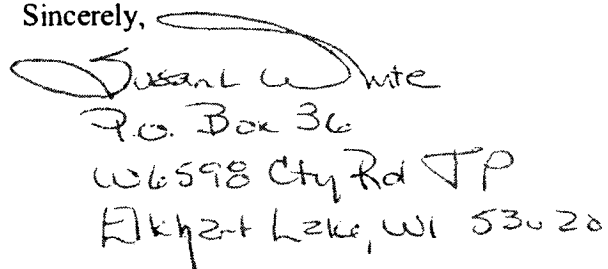 Sincerely,
Susan L White
P.O. Box 36
W6598 Cty Rd JP
Elkhart Lake, WI 53020